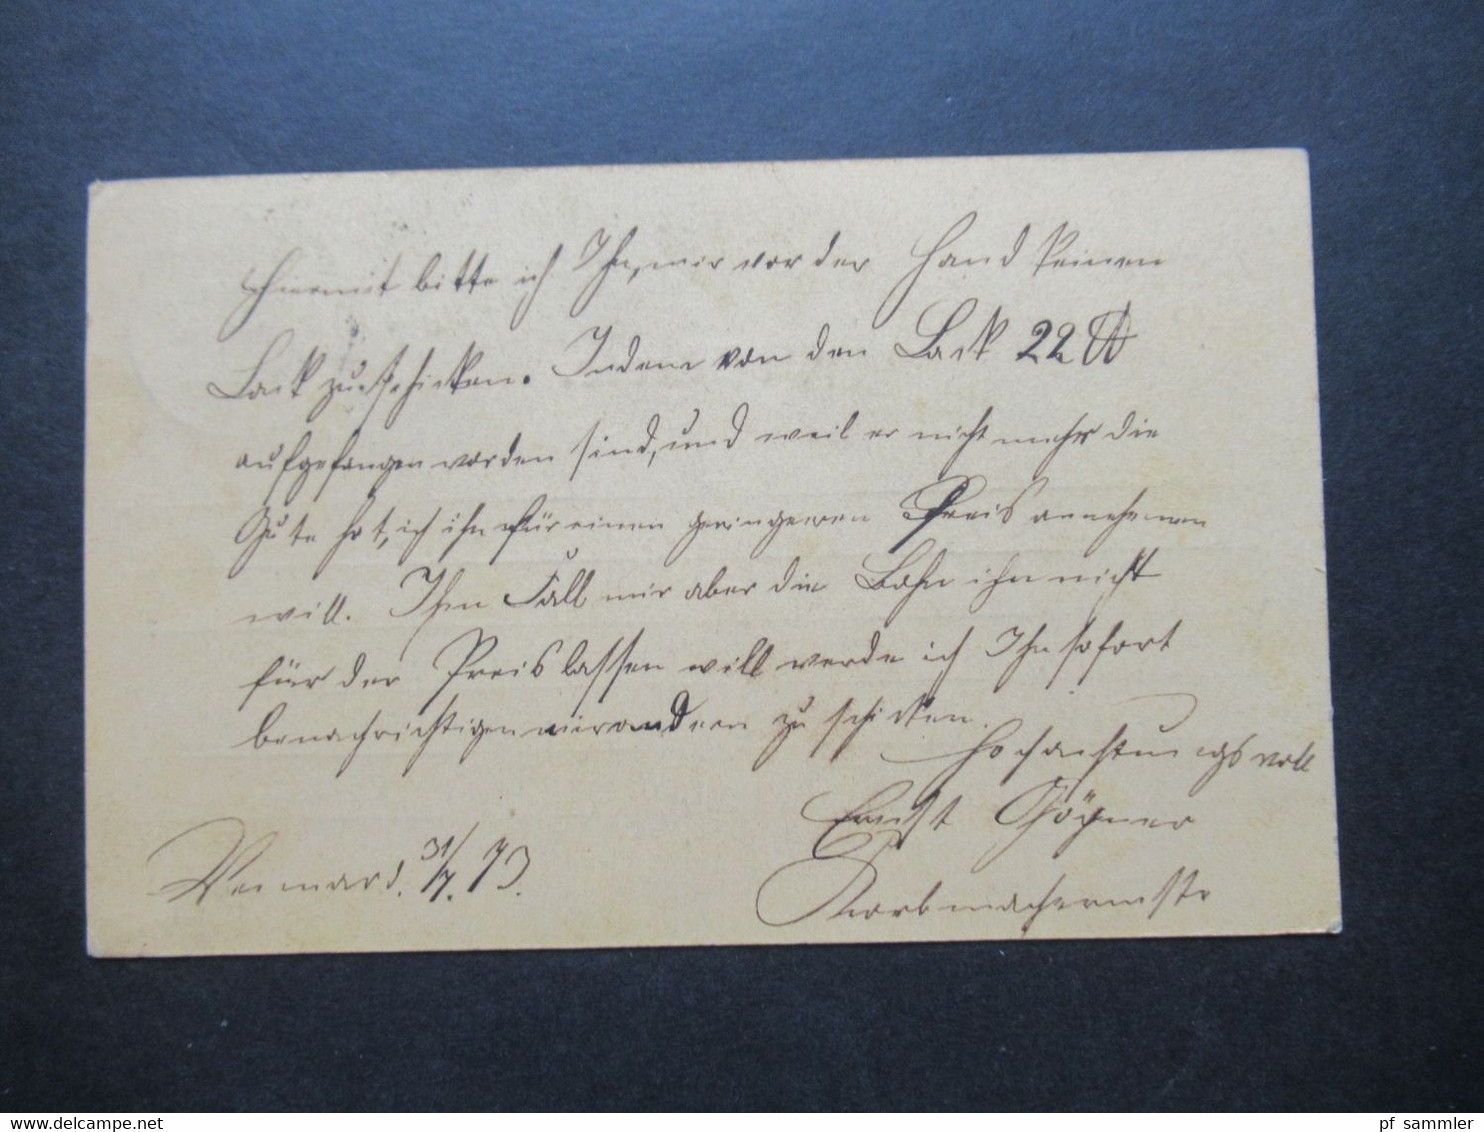 Hiermit bitte ich Ihn, mir vor der Hand keinen
Lack zu schicken. Indem von den Lack 22 ℔
aufgefangen worden sind, und weil er nicht mehr die
Gute hat, ich ihn für einen geringeren Preis annehmen
will. Ihm Fall mir aber die Bahn ihn nicht
für der Preis lassen will werde ich Ihn sofort
benachrichtigen mir andern zu schicken.
Hochachtungsvoll
Ernst
Korbmachermstr
31/7. 73.
pf_sammler
www.delcampe.net